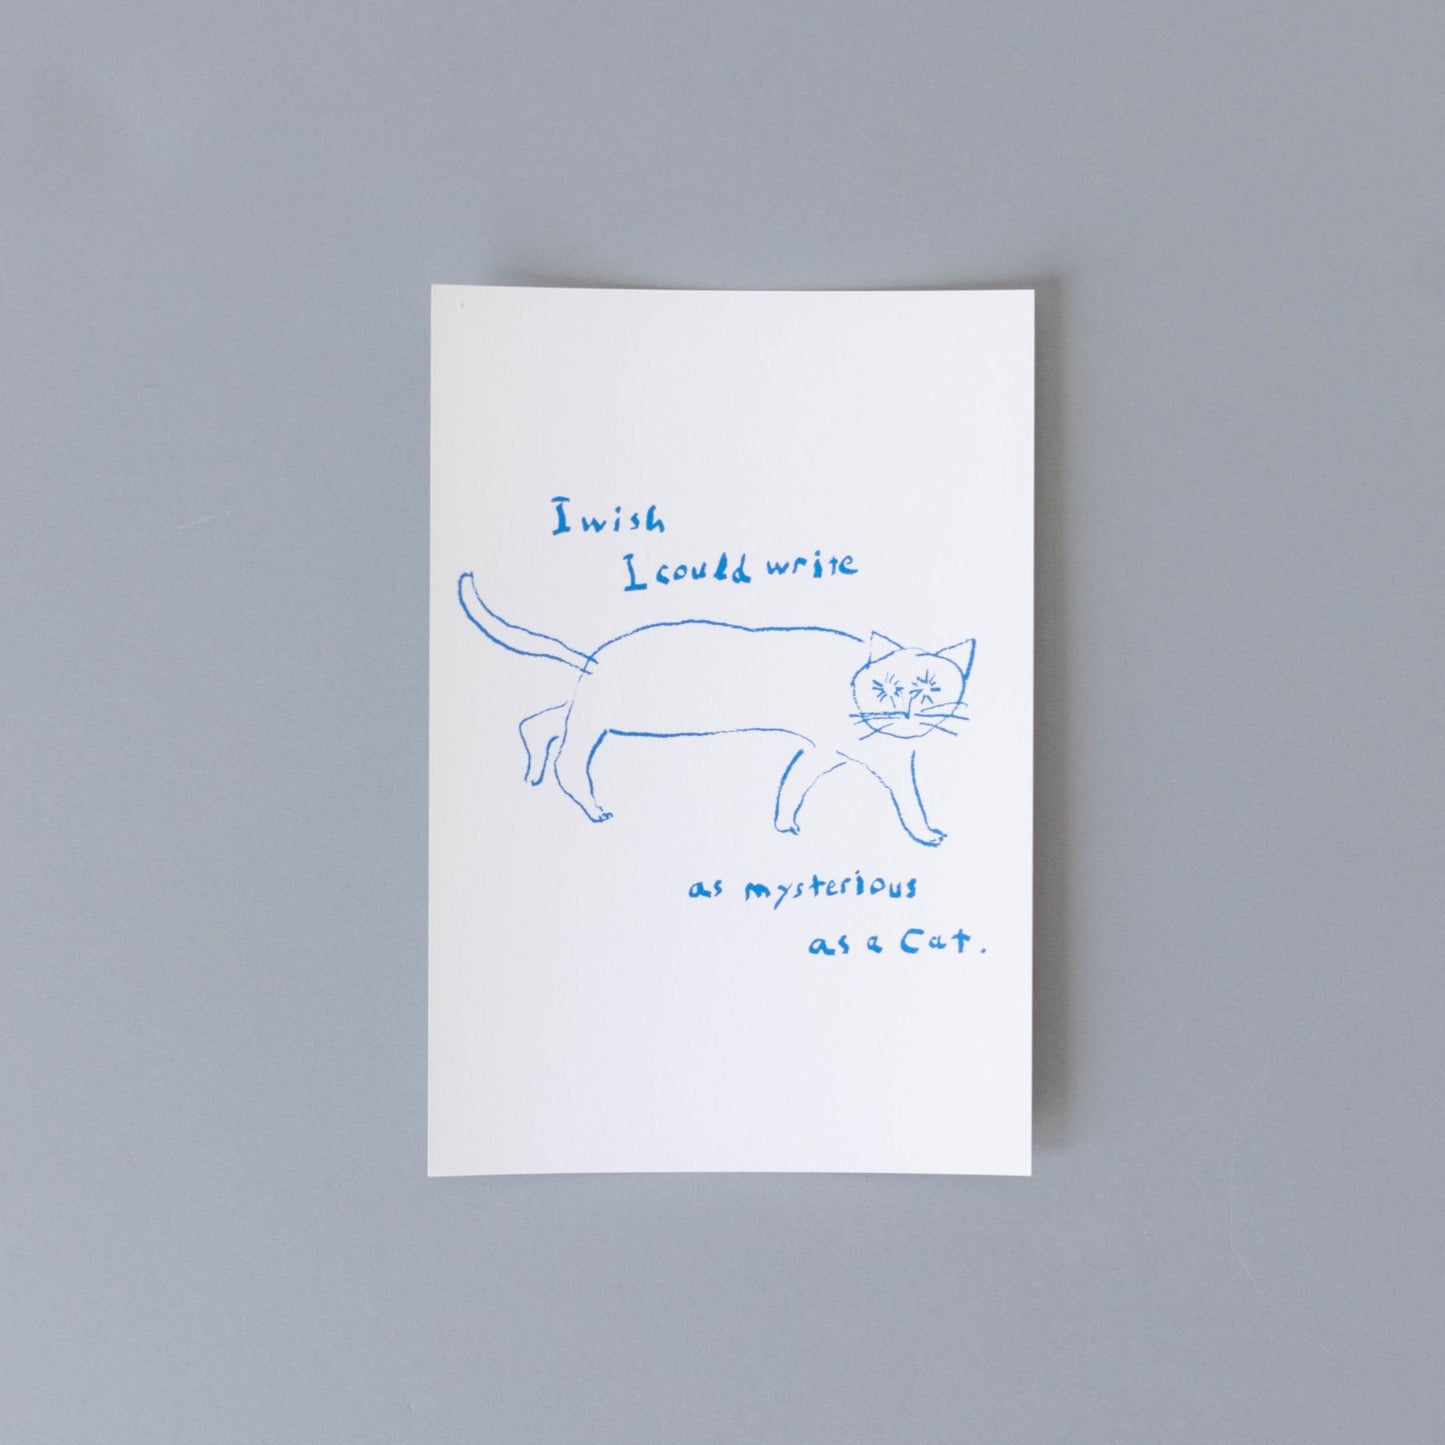 I wish
I could write
as mysterious
as a Cat.